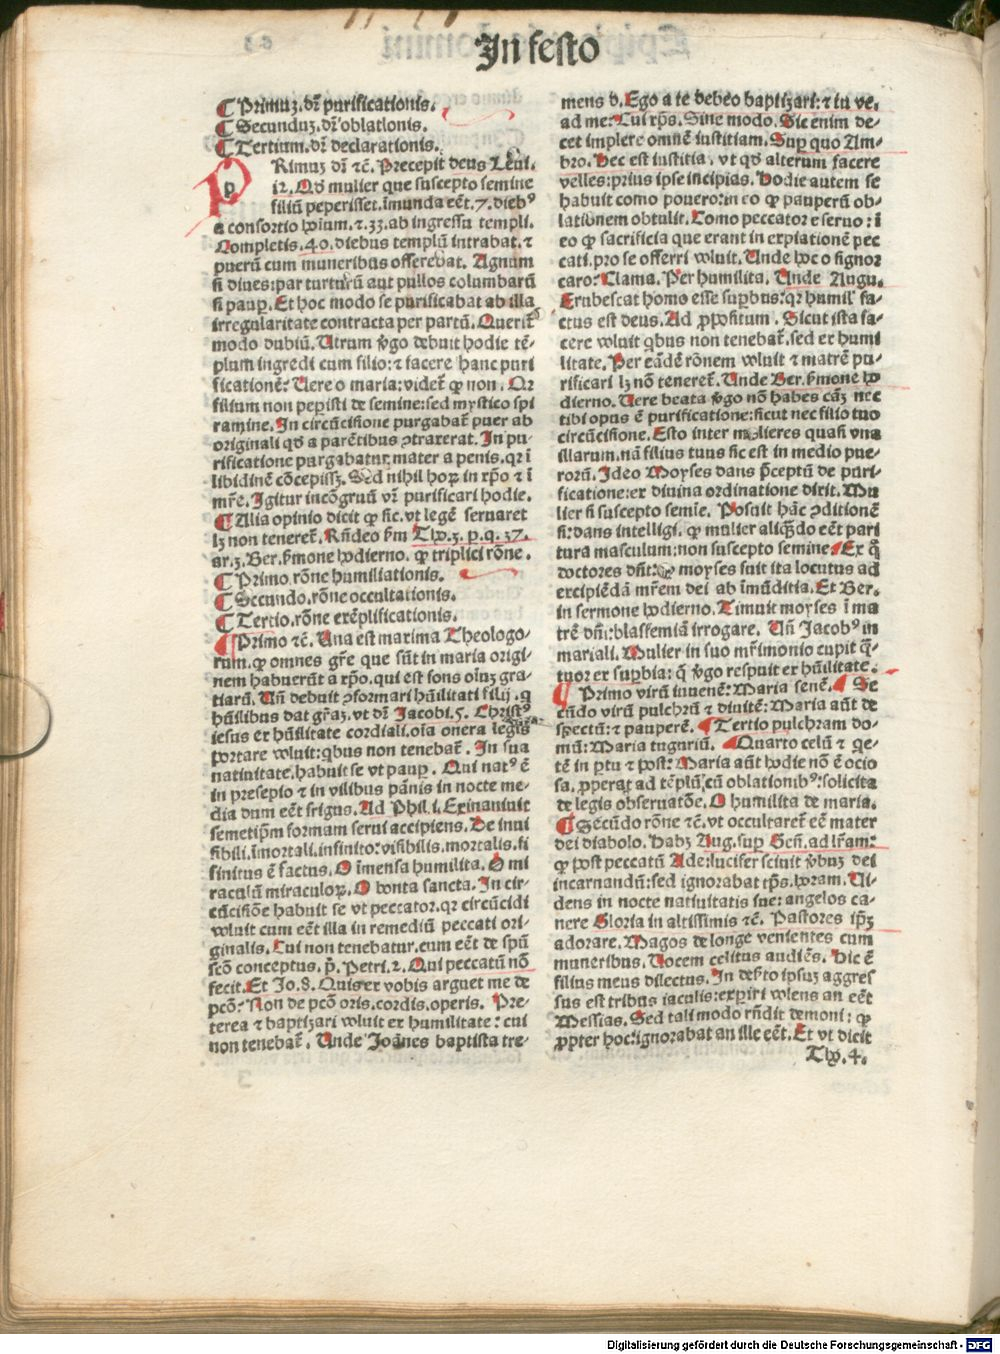 In festo
¶ Primuz. dr̄ purificationis.
¶ Secunduz. dr̄ oblationis.
¶ Tertium. dr̄ declarationis.
PRimuz dr̄ ⁊c̄. Precepit deus Leui.
12. Qd̓ mulier que suscepto semine
filiū peperisset. īmunda eēt. 7. dieb⁹
a consortio hoīum. ⁊. 33. ab ingressu templi.
Completis. 40. diebus templū intrabat. ⁊
puerū cum muneribus offerebat. Agnum
si diues: par turturū aut pullos columbarū
si paup̄. Et hoc modo se purificabat ab illa
irregularitate contracta per partū. Querit̄
modo dubiū. Utrum v̓go debuit hodie tē-
plum ingredi cum filio: ⁊ facere hanc puri
ficationē? Uere o maria: videt̄ ꝙ non. Qr
filium non peꝑisti de semine: sed mystico spi
ramine. In circūcisione purgabat̄ puer ab
originali qd̓ a parētibus ꝯtraxerat. In pu-
rificatione purgabatur mater a penis. qr ī
libidinē cōcepissz. Sed nihil horꝝ in xp̄o ⁊ ī
mr̄e. Igitur incōgruū vr̄ purificari hodie.
¶ Alia opinio dicit ꝙ sic. vt legē seruaret
lꝫ non teneret̄. Rn̄deo ẜm Tho. 3. p. q. 37.
ar. 3. Ber. ẜmone hodierno. ꝙ triplici rōne.
¶ Primo. rōne humiliationis.
¶ Secundo. rōne occultationis.
¶ Tertio. rōne exēplificationis.
¶ Primo ⁊c̄. Una est maxima Theologo-
rum. ꝙ omnes gr̄e que sūt in maria origi-
nem habuerūt a xp̄o. qui est fons oīuz gra-
tiarū. Un̄ debuit ꝯformari hūilitati filij. q
hūilibus dat gr̄az. vt dr̄ Jacobi. 5. Christ⁹
iesus ex hūilitate cordiali. oīa onera legis
portare voluit: qbus non tenebat̄. In sua
natiuitate. habuit se vt paup̄. Qui nat⁹ ē
in presepio ⁊ in vilibus pānis in nocte me-
dia dum eēt frigus. Ad Phil. i. Exinaniuit
semetip̄m formam serui accipiens. De inui
sibili. īmortali. infinito: visibilis. mortalis. fi
finitus ē factus. O īmensa humilita. O mi
raculū miraculoꝝ. O bonta sancta. In cir-
cūcisiōe habuit se vt peccator. qr circūcidi
voluit cum eēt illa in remediū peccati ori-
ginalis. Cui non tenebatur. cum eēt de sp̄u
scō conceptus. p̄. Petri. 2. Qui peccatū nō
fecit. Et Jo. 8. Quis ex vobis arguet me de
pcō? Non de pcō oris. cordis. operis. Pre-
terea ⁊ baptizari voluit ex humilitate: cui
non tenebat̄. Unde Joānes baptista tre-
mens d̓. Ego a te debeo baptizari: ⁊ tu ve-
ad me: Cui xp̄s. Sine modo. Sic enim de-
cet implere omnē iustitiam. Sup quo Am-
bro. Hec est iustitia. vt qd̓ alterum facere
velles: prius ipse incipias. Hodie autem se
habuit como pouero: in eo ꝙ pauperū ob-
lationem obtulit. Como peccator e seruo: ī
eo ꝙ sacrificia que erant in expiationē pec
cati. pro se offerri voluit. Unde hoc o signor
caro? Clama. Per humilita. Unde Augu.
Erubescat homo esse suꝑbus: qr humil̓ fa-
ctus est deus. Ad ꝓpositum. Sicut ista fa-
cere voluit qbus non tenebat̄. sed ex humi
litate. Per eādē rōnem voluit ⁊ matrē pu-
rificari lꝫ nō teneret̄. Unde Ber. ẜmone ho
dierno. Uere beata v̓go nō habes cāz nec
tibi opus ē purificatione: sicut nec filio tuo
circūcisione. Esto inter mulieres quasi vna
illarum. nā filius tuus sic est in medio pue-
rorū. Ideo Moyses dans p̄ceptū de puri-
ficatione: ex diuina ordinatione dixit. Mu
lier si suscepto semīe. Posuit hāc ꝯditionē
si: dans intelligi. ꝙ mulier aliqn̄do eēt pari
tura masculum: non suscepto semine. ¶ Ex q̄
doctores dn̄t: ꝙ moyses fuit ita locutus ad
excipiēdā mr̄em dei ab īmūditia. Et Ber.
in sermone hodierno. Timuit moyses ī ma
trē dn̄i: blasfemiā irrogare. Un̄ Jacob⁹ in
mariali. Mulier in suo mr̄imonio cupit q̄t-
tuor ex suꝑbia: q̄ v̓go respuit ex hūilitate.
¶ Primo virū iuuenē: Maria senē. ¶ Se
cūdo virū pulchrū ⁊ diuitē: Maria aūt de
spectū: ⁊ pauperē. ¶ Tertio pulchram do-
mū: Maria tuguriū. ¶ Quarto celū ⁊ qe-
tē in ꝑtu ⁊ post: Maria aūt hodie nō ē ocio
sa. ꝓperat ad tēplū. cū oblationib⁹: solicita
de legis obseruatōe. O humilita de maria.
¶ Secūdo rōne ⁊c̄. vt occultaret̄ eē mater
dei diabolo. Habz Aug. sup Gen̄. ad lr̄am:
ꝙ post peccatū Ade: lucifer sciuit v̓buz dei
incarnandū: sed ignorabat tp̄s. horam. Ui-
dens in nocte natiuitatis sue: angelos ca-
nere Gloria in altissimis ⁊c̄. Pastores ip̄z
adorare. Magos de longe venientes cum
muneribus. Uocem celitus audiēs. Hic ē
filius meus dilectus. In deẜto ipsuz aggres
sus est tribus iaculis: experiri volens an eēt
Messias. Sed tali modo rn̄dit demoni: ꝙ
ꝓpter hoc: ignorabat an ille eēt. Et vt dicit
Tho. 4.
Digitalisierung gefördert durch die Deutsche Forschungsgemeinschaft - DFG